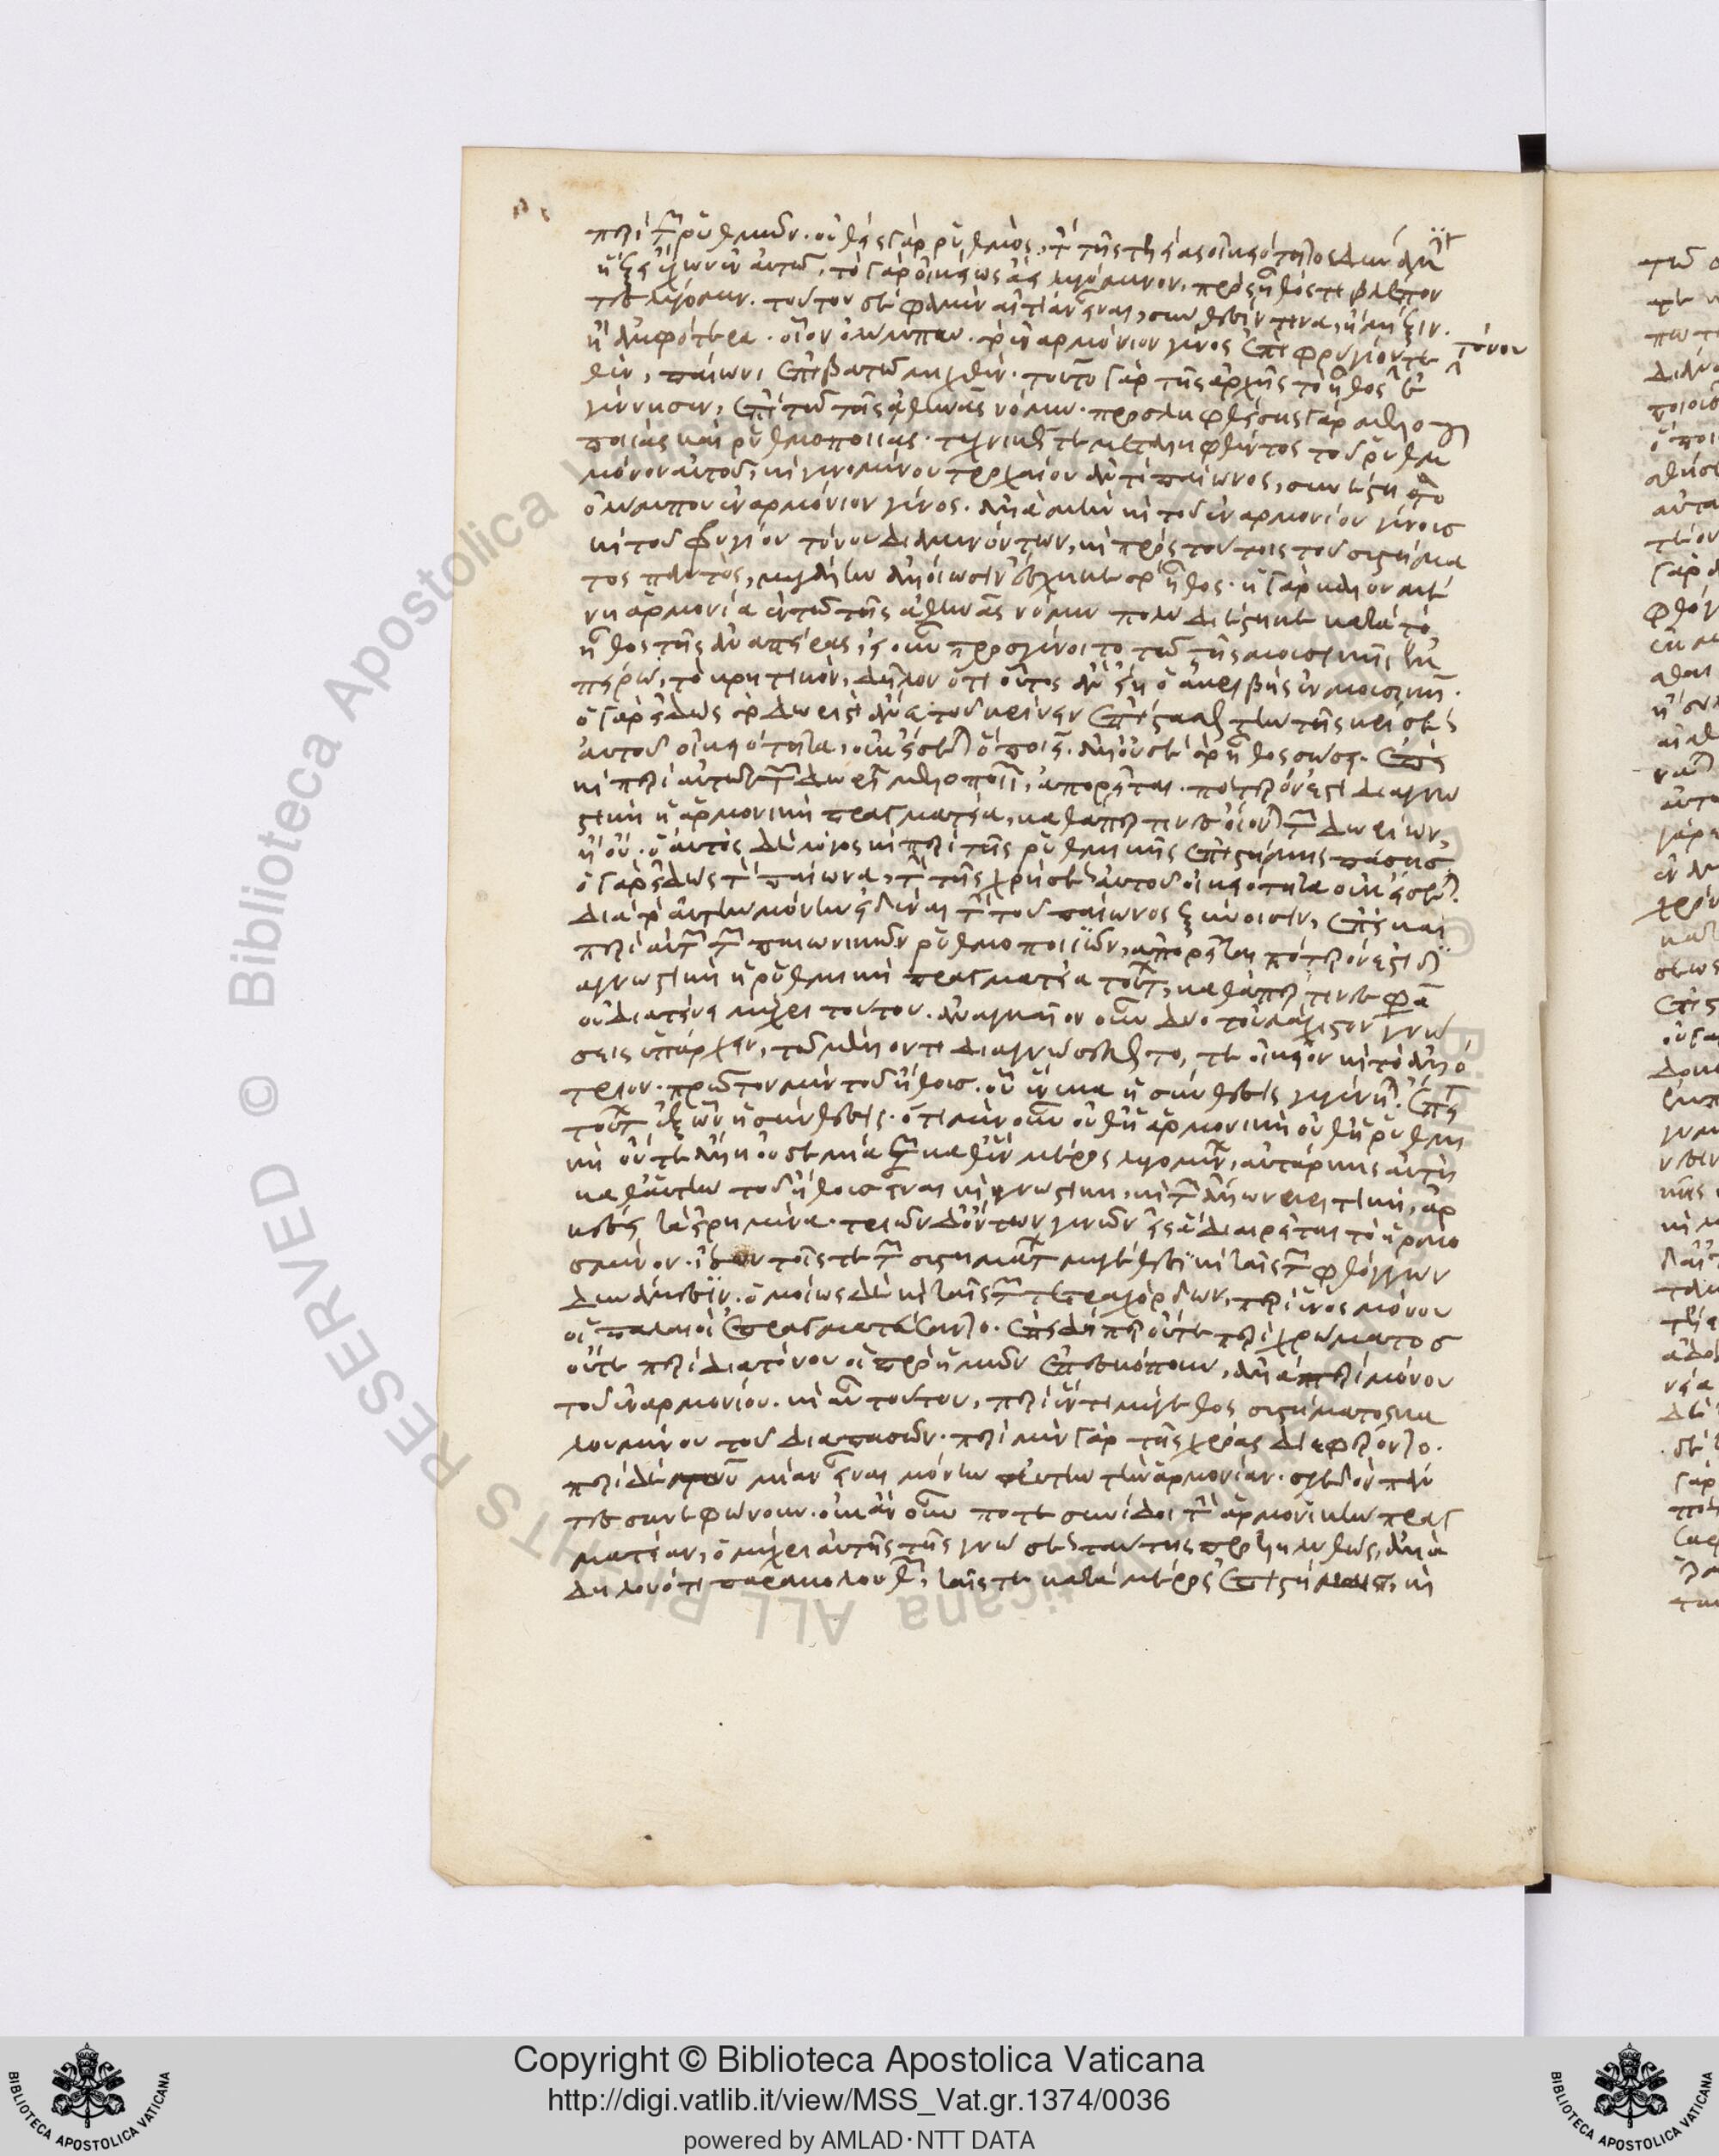 περὶ τῶν ῥυθμῶν. οὐθεὶς γὰρ ῥυθμὸς, τὴν τῆς τελείας οἰκειότητος δύναμιν
ἕξει ἔχων ἐν αὐτῶ. τὸ γὰρ οἰκείως ἀεὶ λεγόμενον, πρὸς ἦθός τι βλέπον
τες λέγομεν. τούτου δέ φαμεν αἰτίαν εἶναι, σύνθεσίν τινα, ἢ μίξιν.
ἢ ἀμφότερα. οἷον ὀλύμπω. τὸ ἐναρμόνιον γένος ἐπὶ φρυγίου τόνου τε
θὲν, παίωνι ἐπιβατῶ μιχθέν. τοῦτο γὰρ τῆς ἀρχῆς τὸ ἦθος ἐ
γέννησεν, ἐπὶ τῶ τῆς ἀθηνᾶς νόμω. προσληφθείσης γὰρ μελο
ποιίας καὶ ῥυθμοποιίας. τεχνικῶς τε μεταληφθέντος τοῦ ῥυθμοῦ
μόνον αὐτοῦ, καὶ γενομένου τροχαίου ἀντὶ παίωνος, συνέστη τὸ
ὀλύμπου ἐναρμόνιον γένος. ἀλλὰ μὴν καὶ τοῦ ἐναρμονίου γένους
καὶ τοῦ φρυγίου τόνου διαμενόντων, καὶ πρὸς τούτοις τοῦ συστήμα
τος παντὸς, μεγάλην ἀλλοίωσιν ἔσχηκε τὸ ἦθος. ἡ γὰρ καλουμέ
νη ἁρμονία ἐν τῶ τῆς ἀθηνᾶς νόμω πολὺ διέστηκε κατὰ τὸ
ἦθος τῆς ἀναπείρας, εἰ οὖν προσγένοιτο τῶ τῆς μουσικῆς ἐμ
πείρω, τὸ κριτικὸν, δῆλον ὅτι οὗτος ἂν εἴη ὁ ἀκριβὴς ἐν μουσικῆ.
ὁ γὰρ εἰδὼς τὸ δωριστὶ ἄνευ τοῦ κρίνειν ἐπίστασθαι τὴν τῆς χρήσεως
αὐτοῦ οἰκειότητα, οὐκ εἴσεται ὃ ποιεῖ. ἀλλ' οὐδὲ τὸ ἦθος σώσει. ἐπεὶ
καὶ περὶ αὐτῶν τῶν δωρίων μελοποιιῶν, ἀπορεῖται. πότερόν ἐστι διαγνω
στικὴ ἡ ἁρμονικὴ πραγματεία, καθάπερ τινὲς οἴονται τῶν δωρίων,
ἢ οὔ. ὁ αὐτὸς δὲ λόγος καὶ περὶ τῆς ῥυθμικῆς ἐπιστήμης πάσης,
ὁ γὰρ εἰδὼς τὸν παίωνα, τὴν τῆς χρήσεως αὐτοῦ οἰκειότητα οὐκ εἴσεται.
διὰ τὸ αὐτὴν μόνην εἰδέναι τὴν τοῦ παίωνος ξύνθεσιν, ἐπεὶ καὶ
περὶ αὐτῶν τῶν παιωνικῶν ῥυθμοποιιῶν, ἀπορεῖται πότερόν ἐστι δι
αγνωστικὴ ἡ ῥυθμικὴ πραγματεία τούτων, καθάπερ τινές φασιν
οὐ διατείνει μέχρι τούτου. ἀναγκαῖον οὖν δύο τοὐλάχιστον γνώ
σεις ὑπάρχειν, τῶ μέλλοντι διαγνώσεσθαι τό, τε οἰκεῖον καὶ τὸ ἀλλό
τριον. πρῶτον μὲν τοῦ ἤθους. οὗ ἕνεκα ἡ σύνθεσις γεγένηται. ἔπειτα
τούτων ἐξ ὧν ἡ σύνθεσις. ὅτι μὲν οὖν οὔθ' ἡ ἁρμονικὴ οὔθ' ἡ ῥυθμι
κὴ οὔτε ἄλλη οὐδεμία τῶν καθ' ἓν μέρος λεγομένων, αὐτάρκης αὐτὴ
καθ' αὑτὴν τοῦ ἤθους εἶναι καὶ γνωστικὴ, καὶ τῶν ἄλλων κριτικὴ, ἀρ
κέσει τὰ εἰρημένα. τριῶν δ' ὄντων γενῶν εἰς ἃ διαιρεῖται τὸ ἡρμο
σμένον. ἴσων τοῖς τε τῶν συστημάτων μεγέθεσι καὶ ταῖς τῶν φθόγγων
δυνάμεσιν. ὁμοίως δὲ καὶ ταῖς τῶν τετραχόρδων, περὶ ἑνὸς μόνου
οἱ παλαιοὶ ἐπραγματεύσαντο. ἐπειδήπερ οὔτε περὶ χρώματος
οὔτε περὶ διατόνου οἱ πρὸ ἡμῶν ἐπεσκόπουν, ἀλλὰ περὶ μόνου
τοῦ ἐναρμονίου. καὶ αὖ τούτου, περὶ ἕν τι μέγεθος συστήματος κα
λουμένου τοῦ διαπασῶν. περὶ μὲν γὰρ τῆς χρόας διεφέροντο.
περὶ δὲ τοῦ μίαν εἶναι μόνην αὐτὴν τὴν ἁρμονίαν. σχεδὸν πάν
τες συνεφώνουν. οὐκ ἂν οὖν ποτε συνίδοι τὴν ἁρμονικὴν πραγ
ματείαν, ὁ μέχρι αὐτῆς τῆς γνώσεως ταύτης προεληλυθώς, ἀλλὰ
δηλονότι παρακολουθῶν, ταῖς τε κατὰ μέρος ἐπιστήμαις, καὶ
Copyright © Biblioteca Apostolica Vaticana
http://digi.vatlib.it/view/MSS_Vat.gr.1374/0036
powered by AMLAD·NTT DATA
BIBLIOTECA APOSTOLICA VATICANA
BIBLIOTECA APOSTOLICA VATICANA